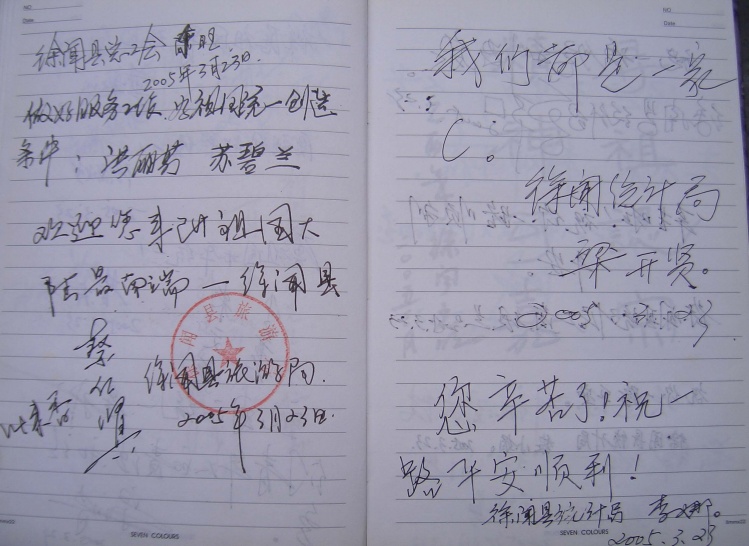 NO
Date
徐闻县总工会
2005年3月23日.
做好服务工作 为祖国统一创造
条件: 洪丽芳 苏碧兰
欢迎您来到祖国大
陆最南端—徐闻县
闻县旅游
徐闻县旅游局.
2005年3月23日.
SEVEN COLOURS
NO
Date
我们都是一家
徐闻统计局
梁开贤。
2005. 3. 23
您辛苦了!祝一
路平安顺利!
徐闻县统计局 李
2005.3.23
SEVEN COLOURS